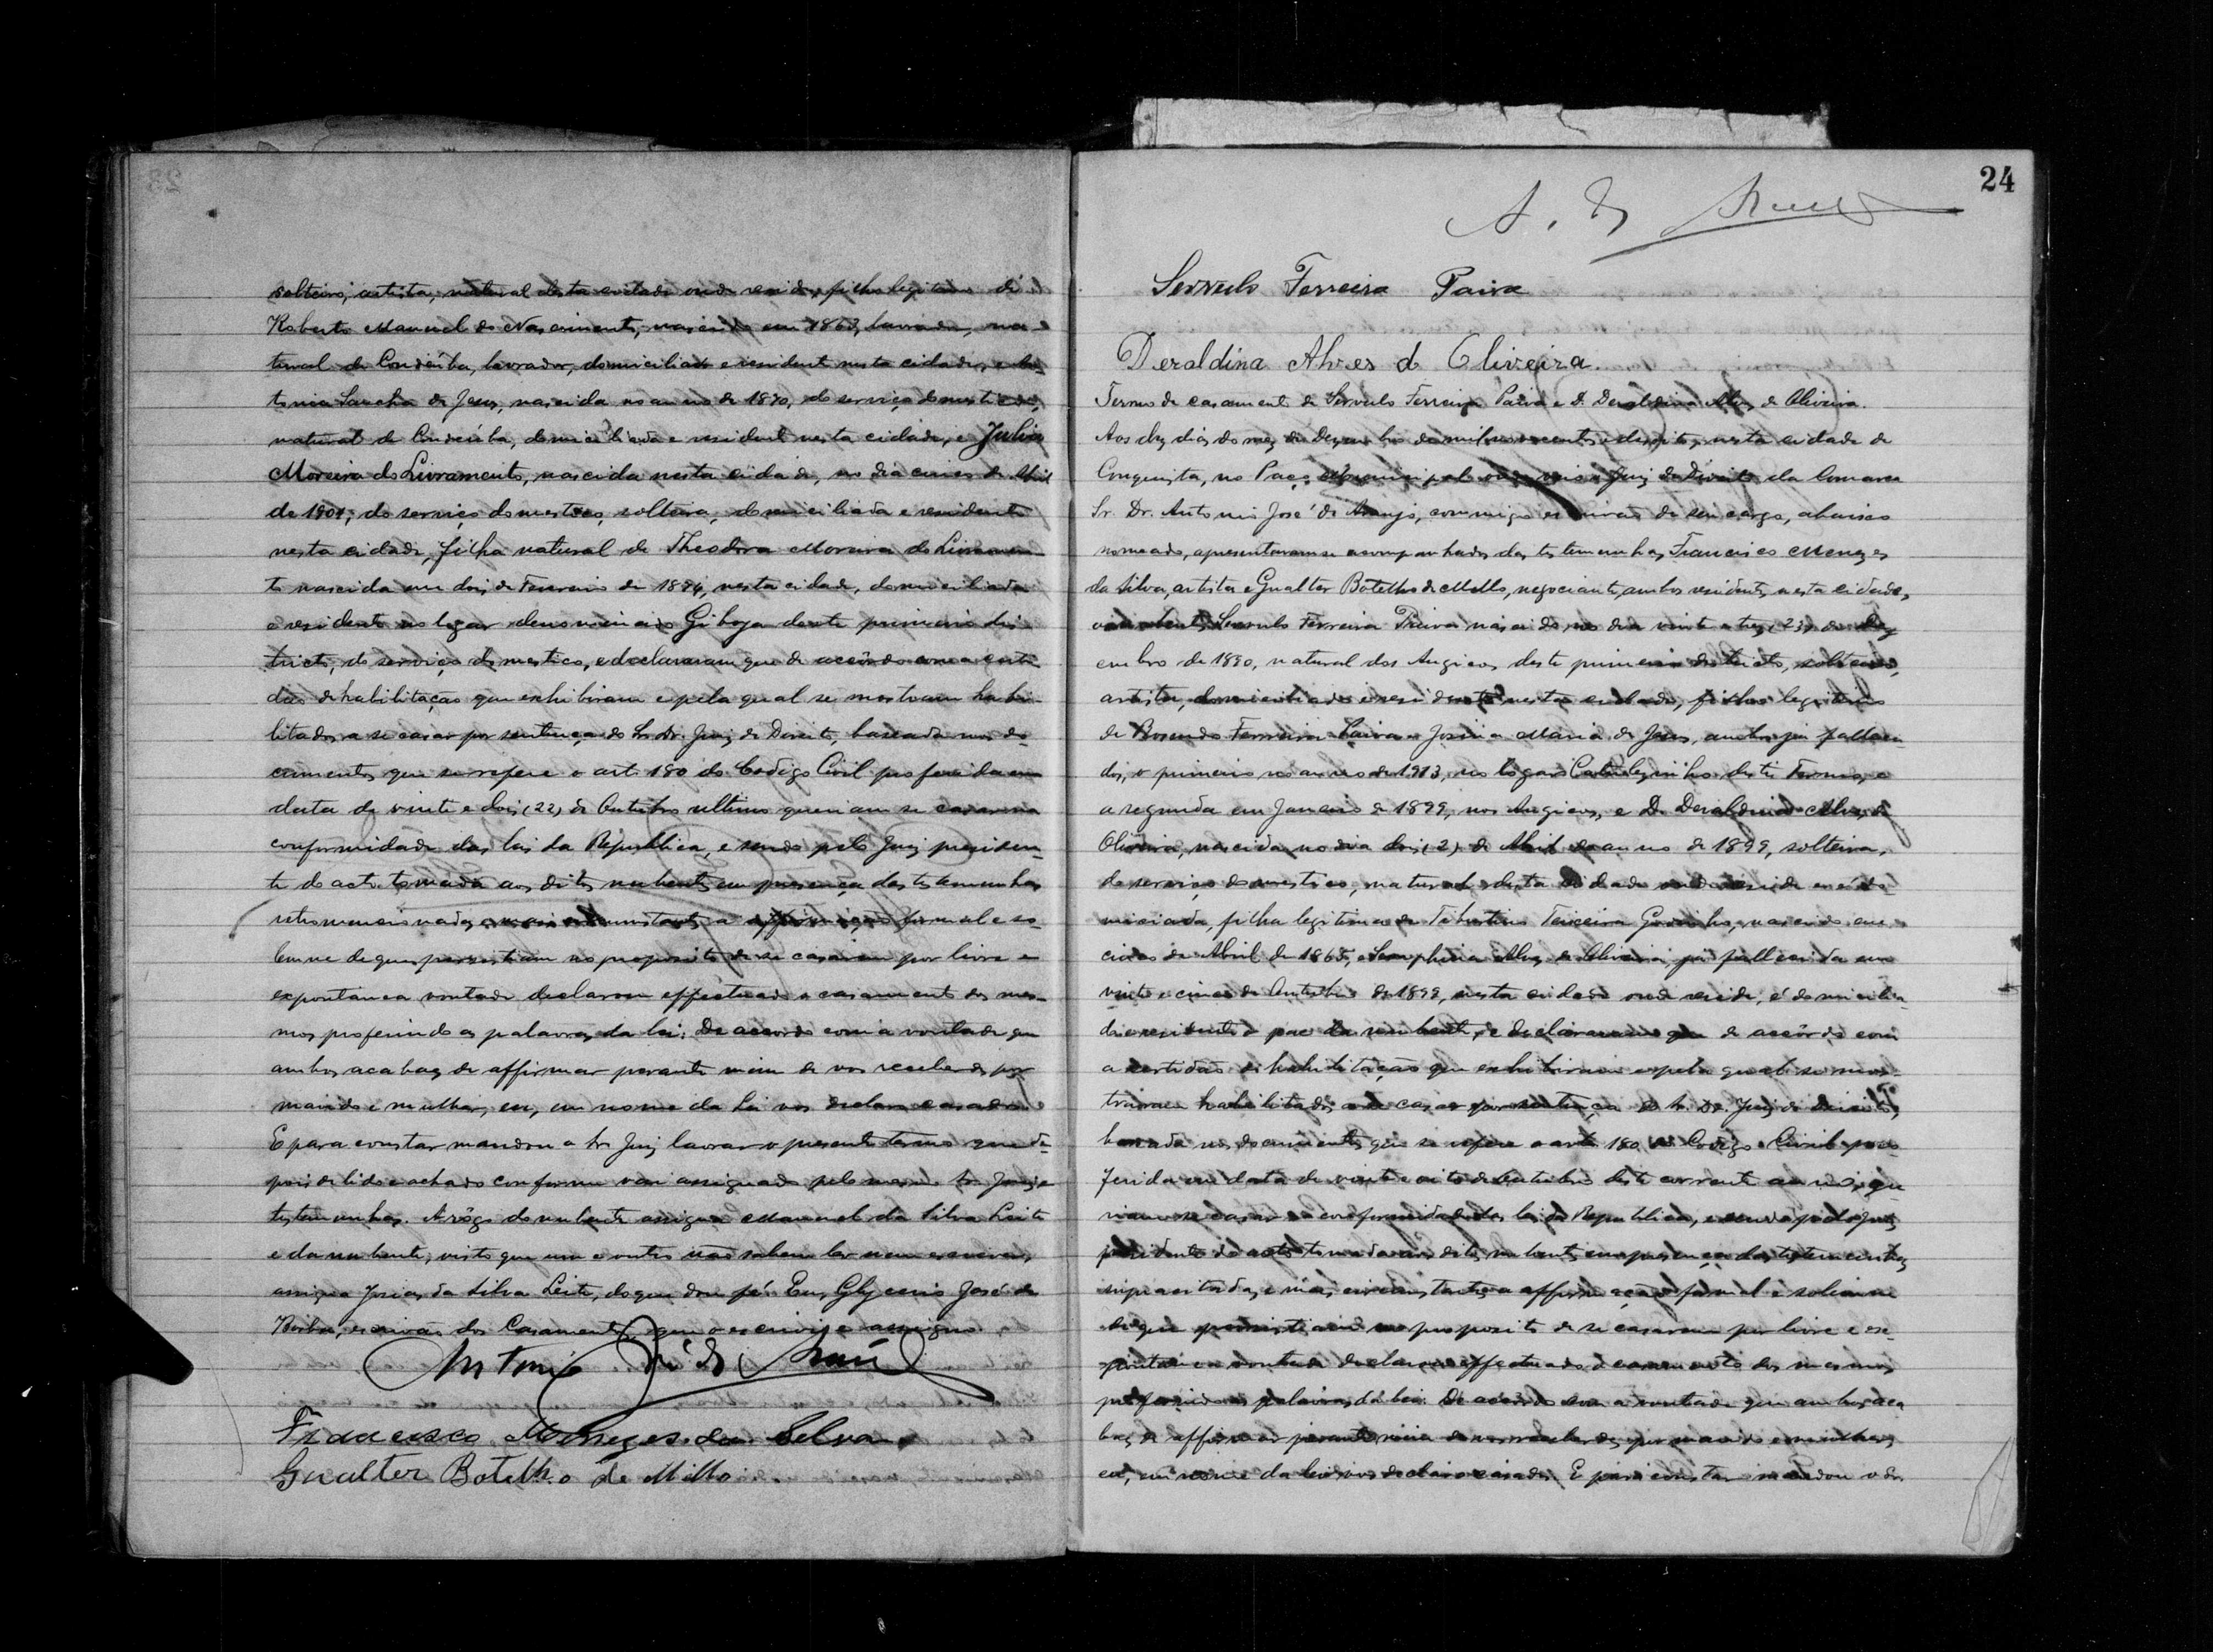 solteiro, artista, natural desta cidade onde reside, filho legitimo de
Roberto Manuel do Nascimento, nascido em 1863, lavrador, na-
tural de Condeúba, lavrador, domiciliado e residente nesta cidade, e An-
tonia Sancha de Jesus, nascida no anno de 1870, do serviço domestico,
natural de Condeúba, domiciliada e residente nesta cidade, e Julia
Moreira do Livramento, nascida nesta cidade, no dia cinco de Abril
de 1901, do serviço domestico, solteira, domiciliada e residente
nesta cidade, filha natural de Theodora Moreira do Livramen-
to nascida em dois de Fevereiro de 1874, nesta cidade, domiciliada
e residente no logar denominado Giboya deste primeiro dis-
tricto, do serviço domestico, e declararam que de accôrdo com a certi-
dão de habilitação que exhibiram e pela qual se mostram habi-
litados a se casar por sentença do Sr. Dr. Juiz de Direito, baseada nos do-
cumentos que se refere o art. 180 do Codigo Civil proferida em
data de vinte e dois (22) de Outubro ultimo queriam se casar na
conformidade das leis da Republica, e sendo pelo Juiz presiden-
te do acto tomada aos ditos nubentes em presença das testemunhas
retromencionadas e mais circumstantes a affirmação formal e so-
lemne de que persistiam no proposito de se casarem por livre e
expontanea vontade declarou effectuado o casamento dos mes-
mos proferindo as palavras da lei: De accordo com a vontade que
ambos acabaes de affirmar perante mim de vos receberdes por
marido e mulher, eu, em nome da Lei vos declaro casados.
E para constar mandou o Sr. Juiz lavrar o presente termo que de-
pois de lido e achado conforme vai assignado pelo mesmo Sr. Juiz e
testemunhas. A rôgo do nubente assigna Manuel da Silva Leite
e da nubente, visto que um e outro não sabem ler nem escrever,
assigna Josias da Silva Leite, do que dou fé. Eu, Glycerio José de
escrivão dos Casamentos, que o escrevi e assigno.
Antonio José de Araujo
Francisco Menezes da Silva
Gualter Botelho de Mello
24
A. de Araujo
Servulo Ferreira Paiva
Deraldina Alves de Oliveira.
Termo de casamento de Servulo Ferreira Paiva e D. Deraldina Alves de Oliveira.
Aos dez dias do mez de Dezembro de mil novecentos e dezoito, nesta cidade de
Conquista, no Paço Municipal onde veio o Juiz de Direito da Comarca
Sr. Dr. Antonio José de Araujo, commigo escrivão de seu cargo, abaixo
nomeado, apresentaram-se acompanhados das testemunhas Francisco Menezes
da Silva, artista e Gualter Botelho de Mello, negociante, ambos residentes nesta cidade,
os nubentes Servulo Ferreira Paiva nascido no dia vinte e tres (23) de Dez-
embro de 1890, natural dos Angicos deste primeiro districto, solteiro,
artista, domiciliado e residente nesta cidade, filho legitimo
de Rosendo Ferreira Paiva e Josina Maria de Jesus, ambos já falleci-
dos, o primeiro no anno de 1913, no logar deste Termo, e
a segunda em Janeiro de 1899, nos Angicos, e D. Deraldina Alves de
Oliveira, nascida no dia dois (2) de Abril do anno de 1899, solteira,
do serviço domestico, natural desta cidade onde reside e é do-
miciliada, filha legitima de Teixeira nascido em
cinco de Abril de 1865, e Alves de Oliveira, já fallecida em
vinte e cinco de Outubro de 1899, nesta cidade onde reside, é domicilia-
do e residente o pae da nubente, e declararam que de accôrdo com
a certidão de habilitação que exhibiram e pela qual se mos-
traram habilitados a se casar por sentença do Sr. Dr. Juiz de Direito,
baseada nos documentos que se refere o art. 180 do Codigo Civil pro-
ferida em data de vinte e oito de Outubro deste corrente anno, que-
riam se casar na conformidade das leis da Republica, e sendo pelo Juiz
presidente do acto tomada aos ditos nubentes em presença das testemunhas
supracitadas, e mais circumstantes a affirmação formal e solemne
de que persistiam no proposito de se casarem por livre e ex-
pontanea vontade declarou effectuado o casamento dos mesmos,
proferindo as palavras da lei: De accôrdo com a vontade que ambos aca-
baes de affirmar perante mim de vos receberdes por marido e mulher,
eu, em nome da lei vos declaro casados. E para constar mandou o Sr.